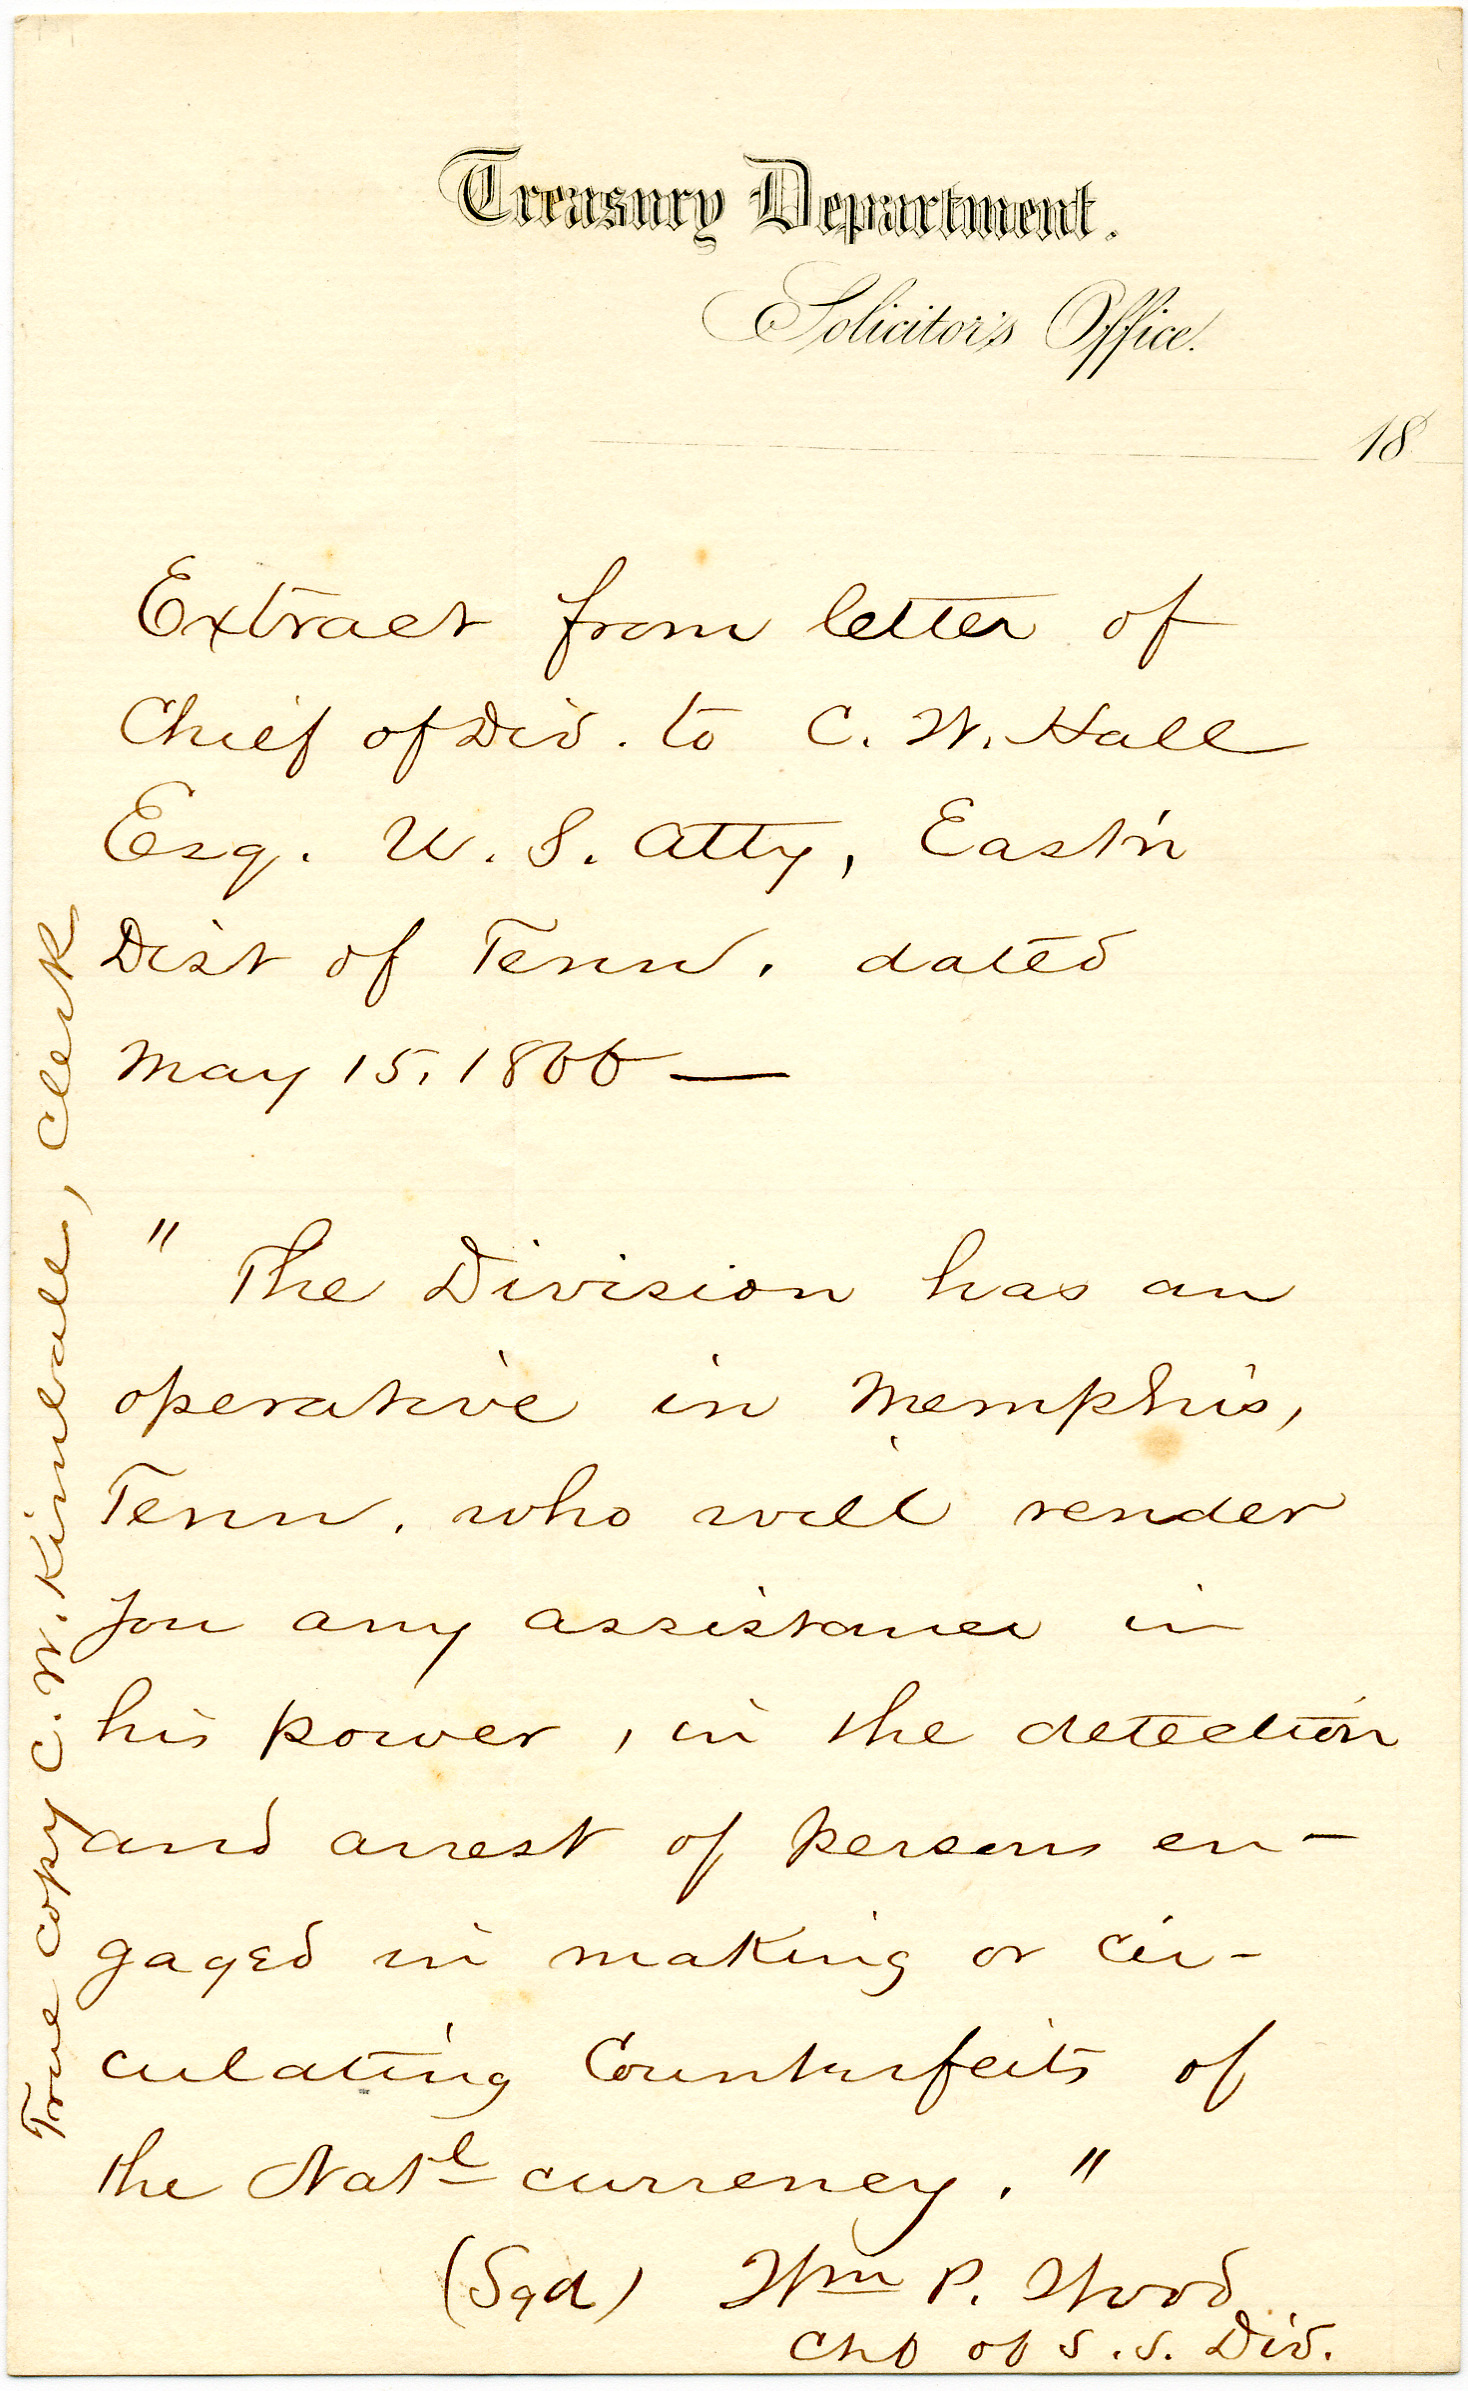 Treasury Department.
Solicitor's Office.
18
Extract from letter of
Chief of Div. to C. W. Hall
Esq. U. S. Atty, East'n
Dist of Tenn. dated
May 15, 1866 —
" The Division has an
operative in Memphis,
Tenn. who will render
you any assistance in
his power, in the detection
and arrest of persons en-
gaged in making or cir-
culating Counterfeits of
the Nat'l currency. "
(Sgd) Wm P. Wood
Chf of S. S. Div.
True copy C. W. Kimball, Clerk